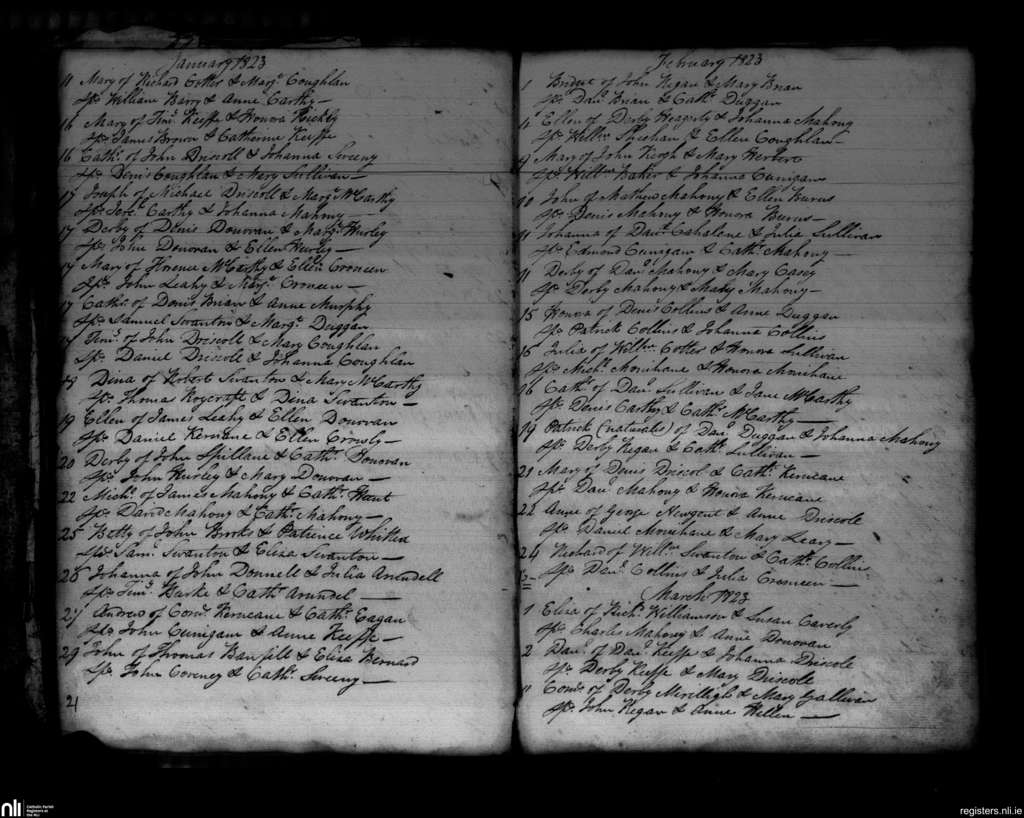 January 1823
11 Mary of Richard Cotter & Margt. Coughlan
Sps. William Barry & Anne Carthy —
16 Mary of Timy. Keiffe & Honora Hickey
Sps. James Brown & Catherine Keiffe
16 Cathe. of John Driscoll & Johanna Sweeny
Sps. Denis Coughlan & Mary Sullivan —
17 Joseph of Michael Driscoll & Margt. McCarthy
Sps. Carthy & Johanna Mahony —
17 Derby of Denis Donovan & Margt. Hurley
Sps. John Donovan & Ellen Hurley —
17 Mary of Florence McCarthy & Ellen Croneen
Sps. John Leahy & Margt. Croneen —
17 Cathe. of Denis Brian & Anne Murphy
Sps. Samuel Swanton & Margt. Duggan
17 Timy. of John Driscoll & Mary Coughlan
Sps. Daniel Driscoll & Johanna Coughlan
19 Dina of Robert Swanton & Mary McCarthy
Sps. Thomas Roycraft & Dina Swanton —
19 Ellen of James Leahy & Ellen Donovan
Sps. Daniel Kerneane & Ellen Crowly —
20 Derby of John Spillane & Cathe. Donovan
Sps. John Hurley & Mary Donovan —
22 Michl. of James Mahony & Cathe.
Sps. David Mahony & Cathe. Mahony —
25 Betty of John Brooks & Patience Whitten
Sps. Saml. Swanton & Eliza Swanton —
26 Johanna of John Donnell & Julia Arundell
Sps. Timy. Burke & Cathe. Arundel —
27 Andrew of Corns. Kerneane & Cathe. Eagan
Sps. John Cunigam & Anne Keeffe —
29 John of Thomas Banfill & Eliza Bernard
Sps. John Coveney & Cathe. Sweeny —
21
February 1823
1 Bridget of John Regan & Mary Brian
Sps. Danl. Brian & Cathe. Duggan
4 Ellen of Derby Heagerty & Johanna Mahony
Sps. Willm. Sheehan & Ellen Coughlan —
9 Mary of John Keogh & Mary Herbert
Sps. Willm. Baker & Johanna Cunigam
10 John of Mathew Mahony & Ellen Burns
Sps. Denis Mehony & Honora Burns —
11 Johanna of Danl. Cahalane & Julia Sullivan
Sps. Edmond Cunigam & Cathe. Mahony —
11 Derby of Danl. Mahony & Mary Casey
Sps. Derby Mahony & Mary Mahony —
15 Honora of Denis Collins & Anne Duggan
Sps. Patrick Collins & Johanna Collins
16 Julia of Willm. Cotter & Honora Sullivan
Sps. Michl. Minihane & Honora Minihane
16 Cathe. of Danl. Sullivan & Jane McCarthy
Sps. Denis Carthy & Cathe. McCarthy —
19 Patrick (naturalis) of Danl. Duggan & Johanna Mahony
Sps. Derby Regan & Cathe. Sullivan —
21 Mary of Denis Driscol & Cathe. Kerneane
Sps. Danl. Mahony & Honora Kerneane
22 Anne of George Newgent & Anne Driscole
Sps. Daniel Minihane & Mary Leary —
24 Richard of Willm. Swanton & Cathe. Collins
Sps. Danl. Collins & Julia Croneen —
March 1823
1 Eliza of Richd. Williamson & Susan Caverly
Sps. Charles Mahony & Anne Donovan
2 Danl. of Danl. Keeffe & Johanna Driscole
Sps. Derby Keeffe & Mary Driscole
11 Corns. of Derby & Mary Gallivan
Sps. John Regan & Anne Hellen —
nli Catholic Parish Registers at the NLI
registers.nli.ie